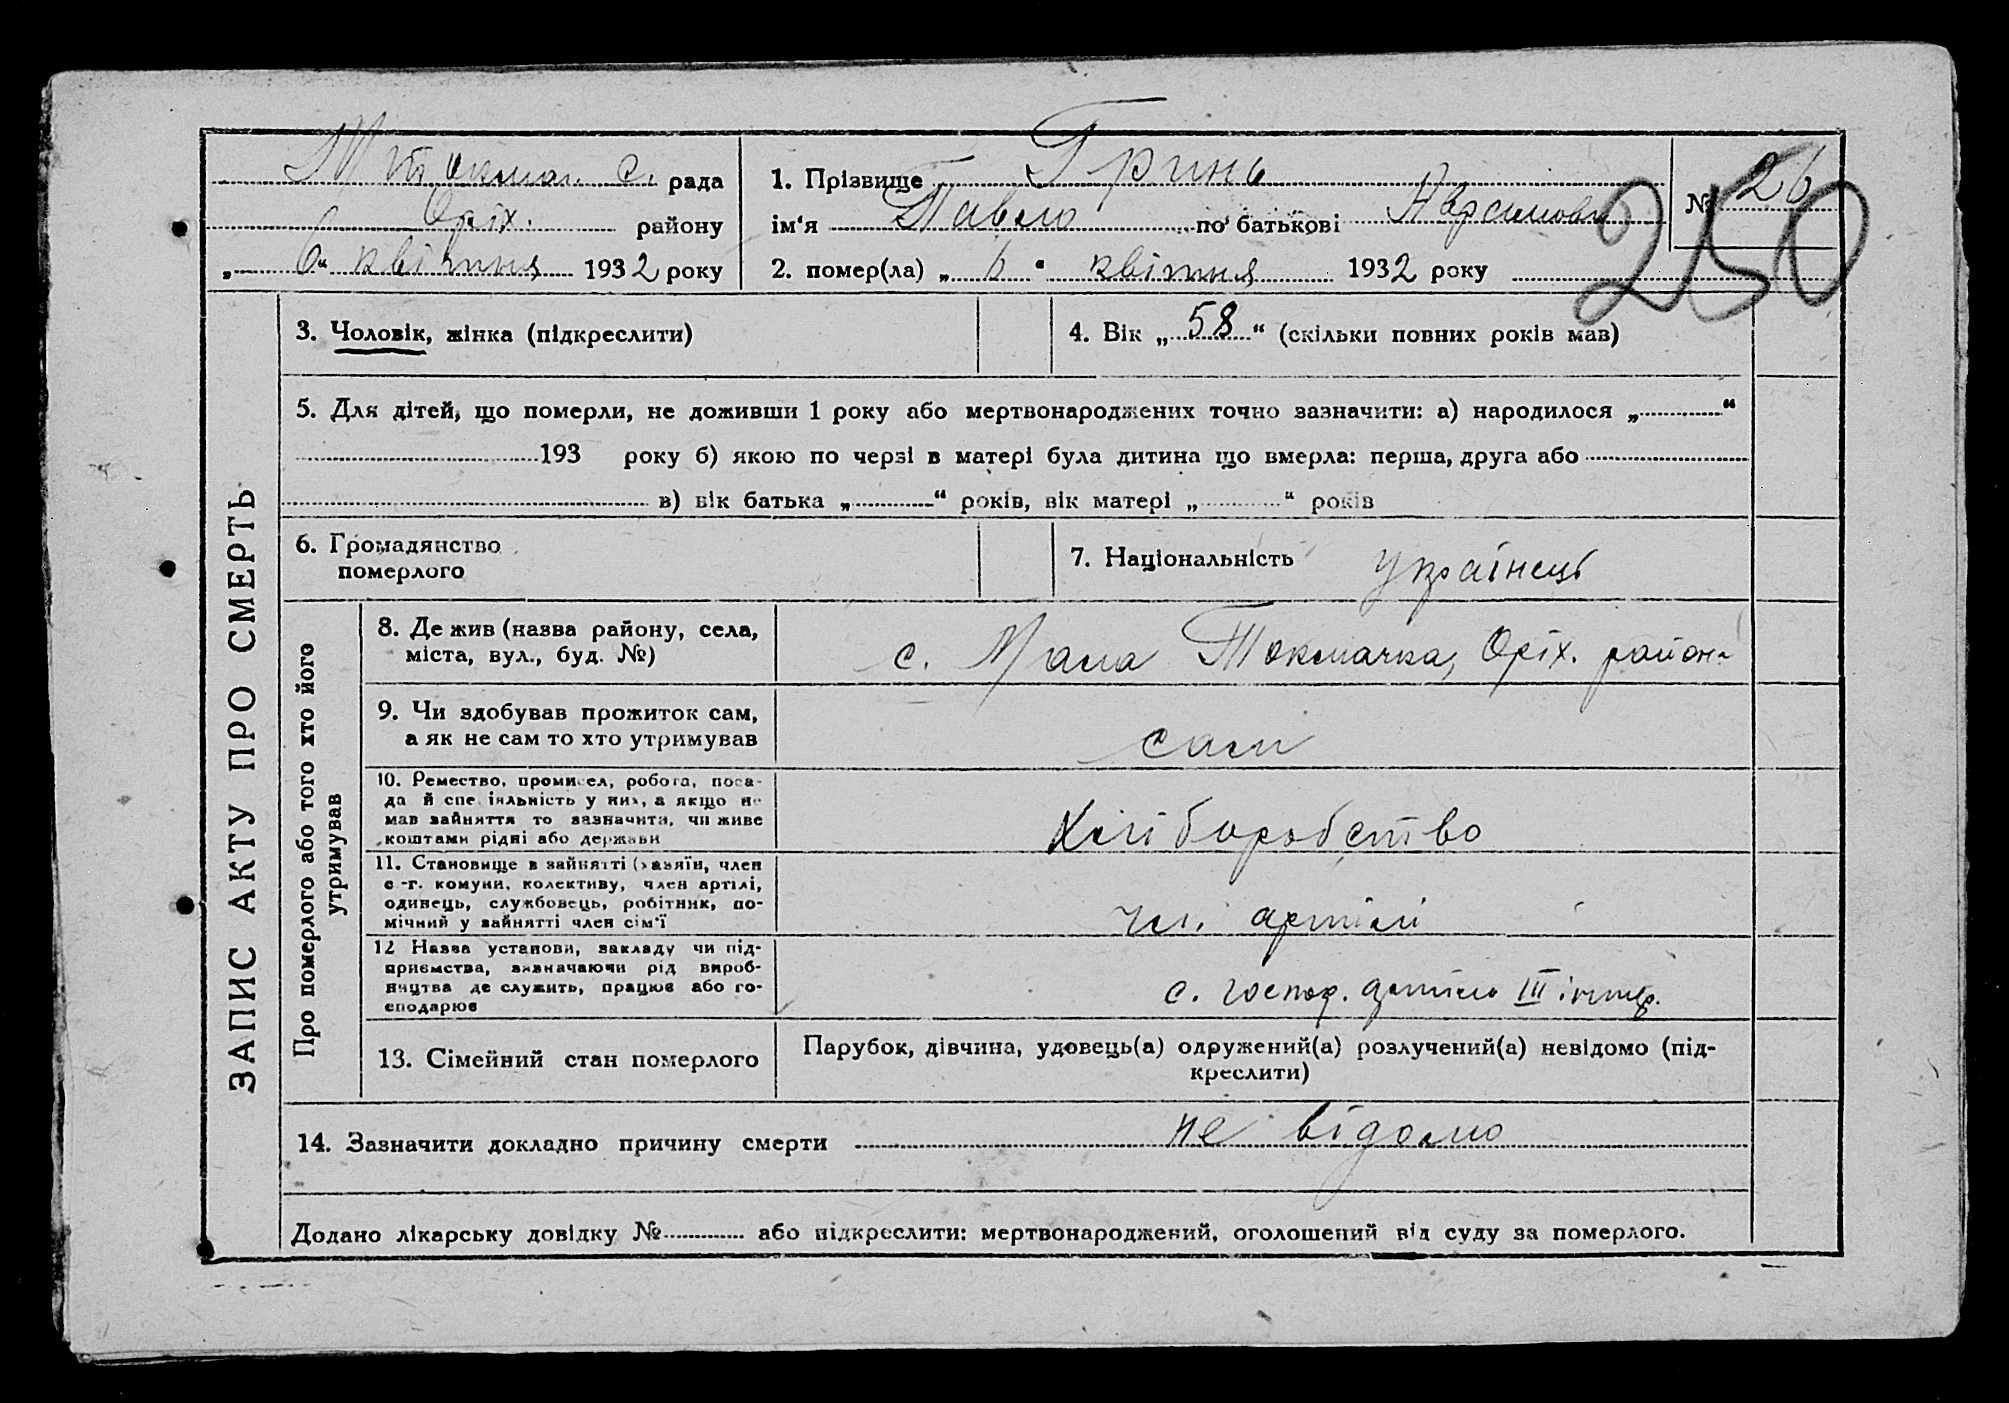 М Токмач. с. рада
Оріх. району
„ 6 “ квітня 1932 року
1. Прізвище Гринь
ім‘я Павло по батькові
2. помер(ла) „ 6 “ квітня 1932 року
№ 26
250
ЗАПИС АКТУ ПРО СМЕРТЬ
3. Чоловік, жінка (підкреслити)
4. Вік „ 58 “ (скільки повних років мав)
5. Для дітей, що померли, не доживши 1 року або мертвонароджених точно зазначити: а) народилося „ “
193 року б) якою по черзі в матері була дитина що вмерла: перша, друга або
в) вік батька „ “ років, вік матері „ “ років
6. Громадянство
померлого
7. Національність українець
Про померлого або того хто його
утримував
8. Де жив (назва району, села,
міста, вул., буд. №)
с. Мала Токмачка, Оріх. район
9. Чи здобував прожиток сам,
а як не сам то хто утримував
сам
10. Ремество, промисел, робота, поса-
да й спеціяльність у них, а якщо не
мав зайняття то зазначити, чи живе
коштами рідні або держави
Хліборобство
11. Становище в зайнятті (хазяїн, член
с.-г. комуни, колективу, член артілі,
одинець, службовець, робітник, по-
мічний у зайнятті член сім‘ї
чл. артілі
12 Назва установи, закладу чи під-
приємства, визначаючи рід вироб-
ництва де служить, працює або го-
сподарює
с. господ. артіль III інтер.
13. Сімейний стан померлого
Парубок, дівчина, удовець(а) одружений(а) розлучений(а) невідомо (під-
креслити)
14. Зазначити докладно причину смерти не відомо
Додано лікарську довідку № або підкреслити: мертвонароджений, оголошений від суду за померлого.